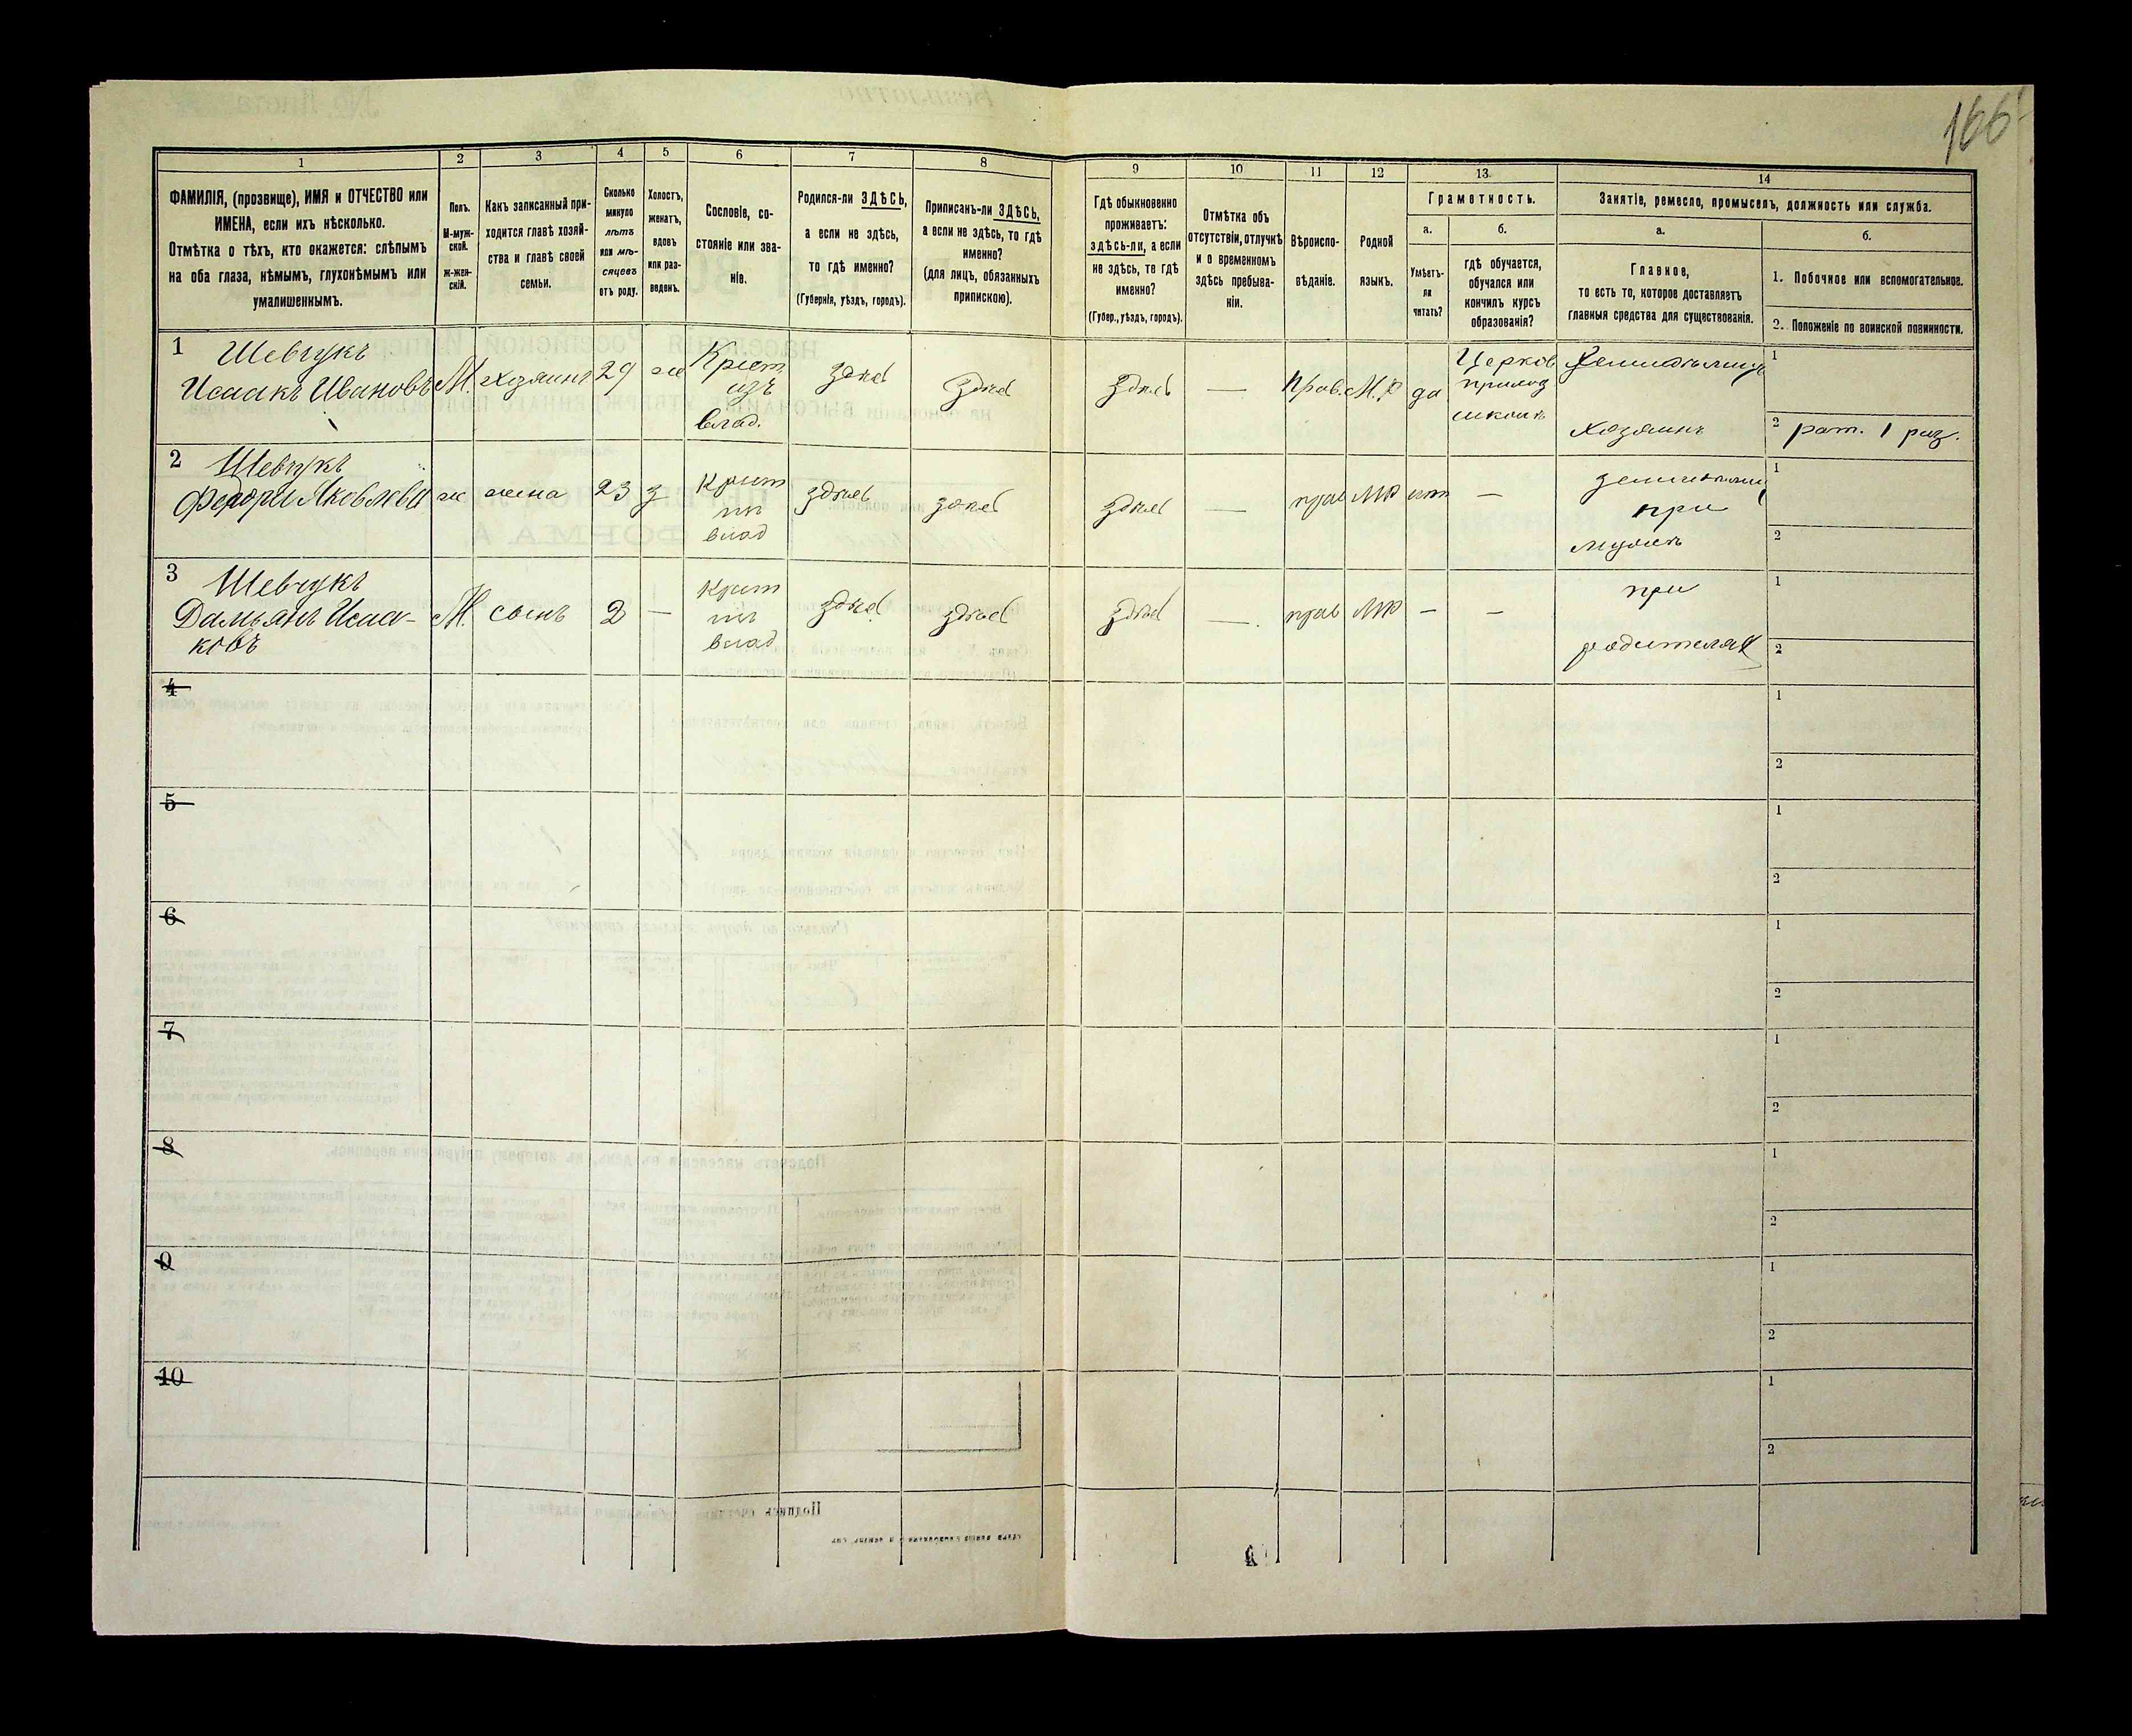 166
1
2
3
4
5
6
7
8
9
10
11
12
13
14
ФАМИЛІЯ, (прозвище), ИМЯ и ОТЧЕСТВО или
ИМЕНА, если ихъ нѣсколько.
Отмѣтка о тѣхъ, кто окажется: слѣпымъ
на оба глаза, нѣмымъ, глухонѣмымъ или
умалишеннымъ.
Полъ.
М-муж-
ской.
Ж-жен-
скій.
Какъ записанный при-
ходится главѣ хозяй-
ства и главѣ своей
семьи.
Сколько
минуло
лѣтъ
или мѣ-
сяцевъ
отъ роду.
Холостъ,
женатъ,
вдовъ
или раз-
веденъ.
Сословіе, со-
стояніе или зва-
ніе.
Родился-ли ЗДѢСЬ,
а если не здѣсь,
то гдѣ именно?
(Губернія, уѣздъ, городъ).
Приписанъ-ли ЗДѢСЬ,
а если не здѣсь, то гдѣ
именно?
(для лицъ, обязанныхъ
припискою).
Гдѣ обыкновенно
проживаетъ:
здѣсь-ли, а если
не здѣсь, то гдѣ
именно?
(Губер., уѣздъ, городъ).
Отмѣтка объ
отсутствіи, отлучкѣ
и о временномъ
здѣсь пребыва-
ніи.
Вѣроиспо-
вѣданіе.
Родной
языкъ.
Грамотность.
а.
Умѣетъ-
ли
читать?
б.
гдѣ обучается,
обучался или
кончилъ курсъ
образованія?
Занятіе, ремесло, промыселъ, должность или служба.
а.
Главное,
то есть то, которое доставляетъ
главныя средства для существованія.
б.
1. Побочное или вспомогательное.
2. Положеніе по воинской повинности.
1 Шевчукъ
Исаакъ Ивановъ
М.
хозяинъ
29
ж
Крест
изъ
влад.
здѣсь
здѣсь
здѣсь
—
Прав.
М.Р
да
Церков
приход
школѣ
Земледѣлецъ
хозяинъ
1
2 рат. 1 раз.
2 Шевчукъ
Федора Яковлева
ж
жена
23
з
Крест
изъ
влад
здѣсь
здѣсь
здѣсь
—
прав
МР
нѣт
—
при
мужѣ
1
2
3 Шевчукъ
Дамьянъ Исаа-
ковъ
М.
сынъ
2
—
Крест
изъ
влад
здѣсь
здѣсь
здѣсь
—
прав
МР
—
—
при
родителях
1
2
4
1
2
5
1
2
6
1
2
7
1
2
8
1
2
9
1
2
10
1
2